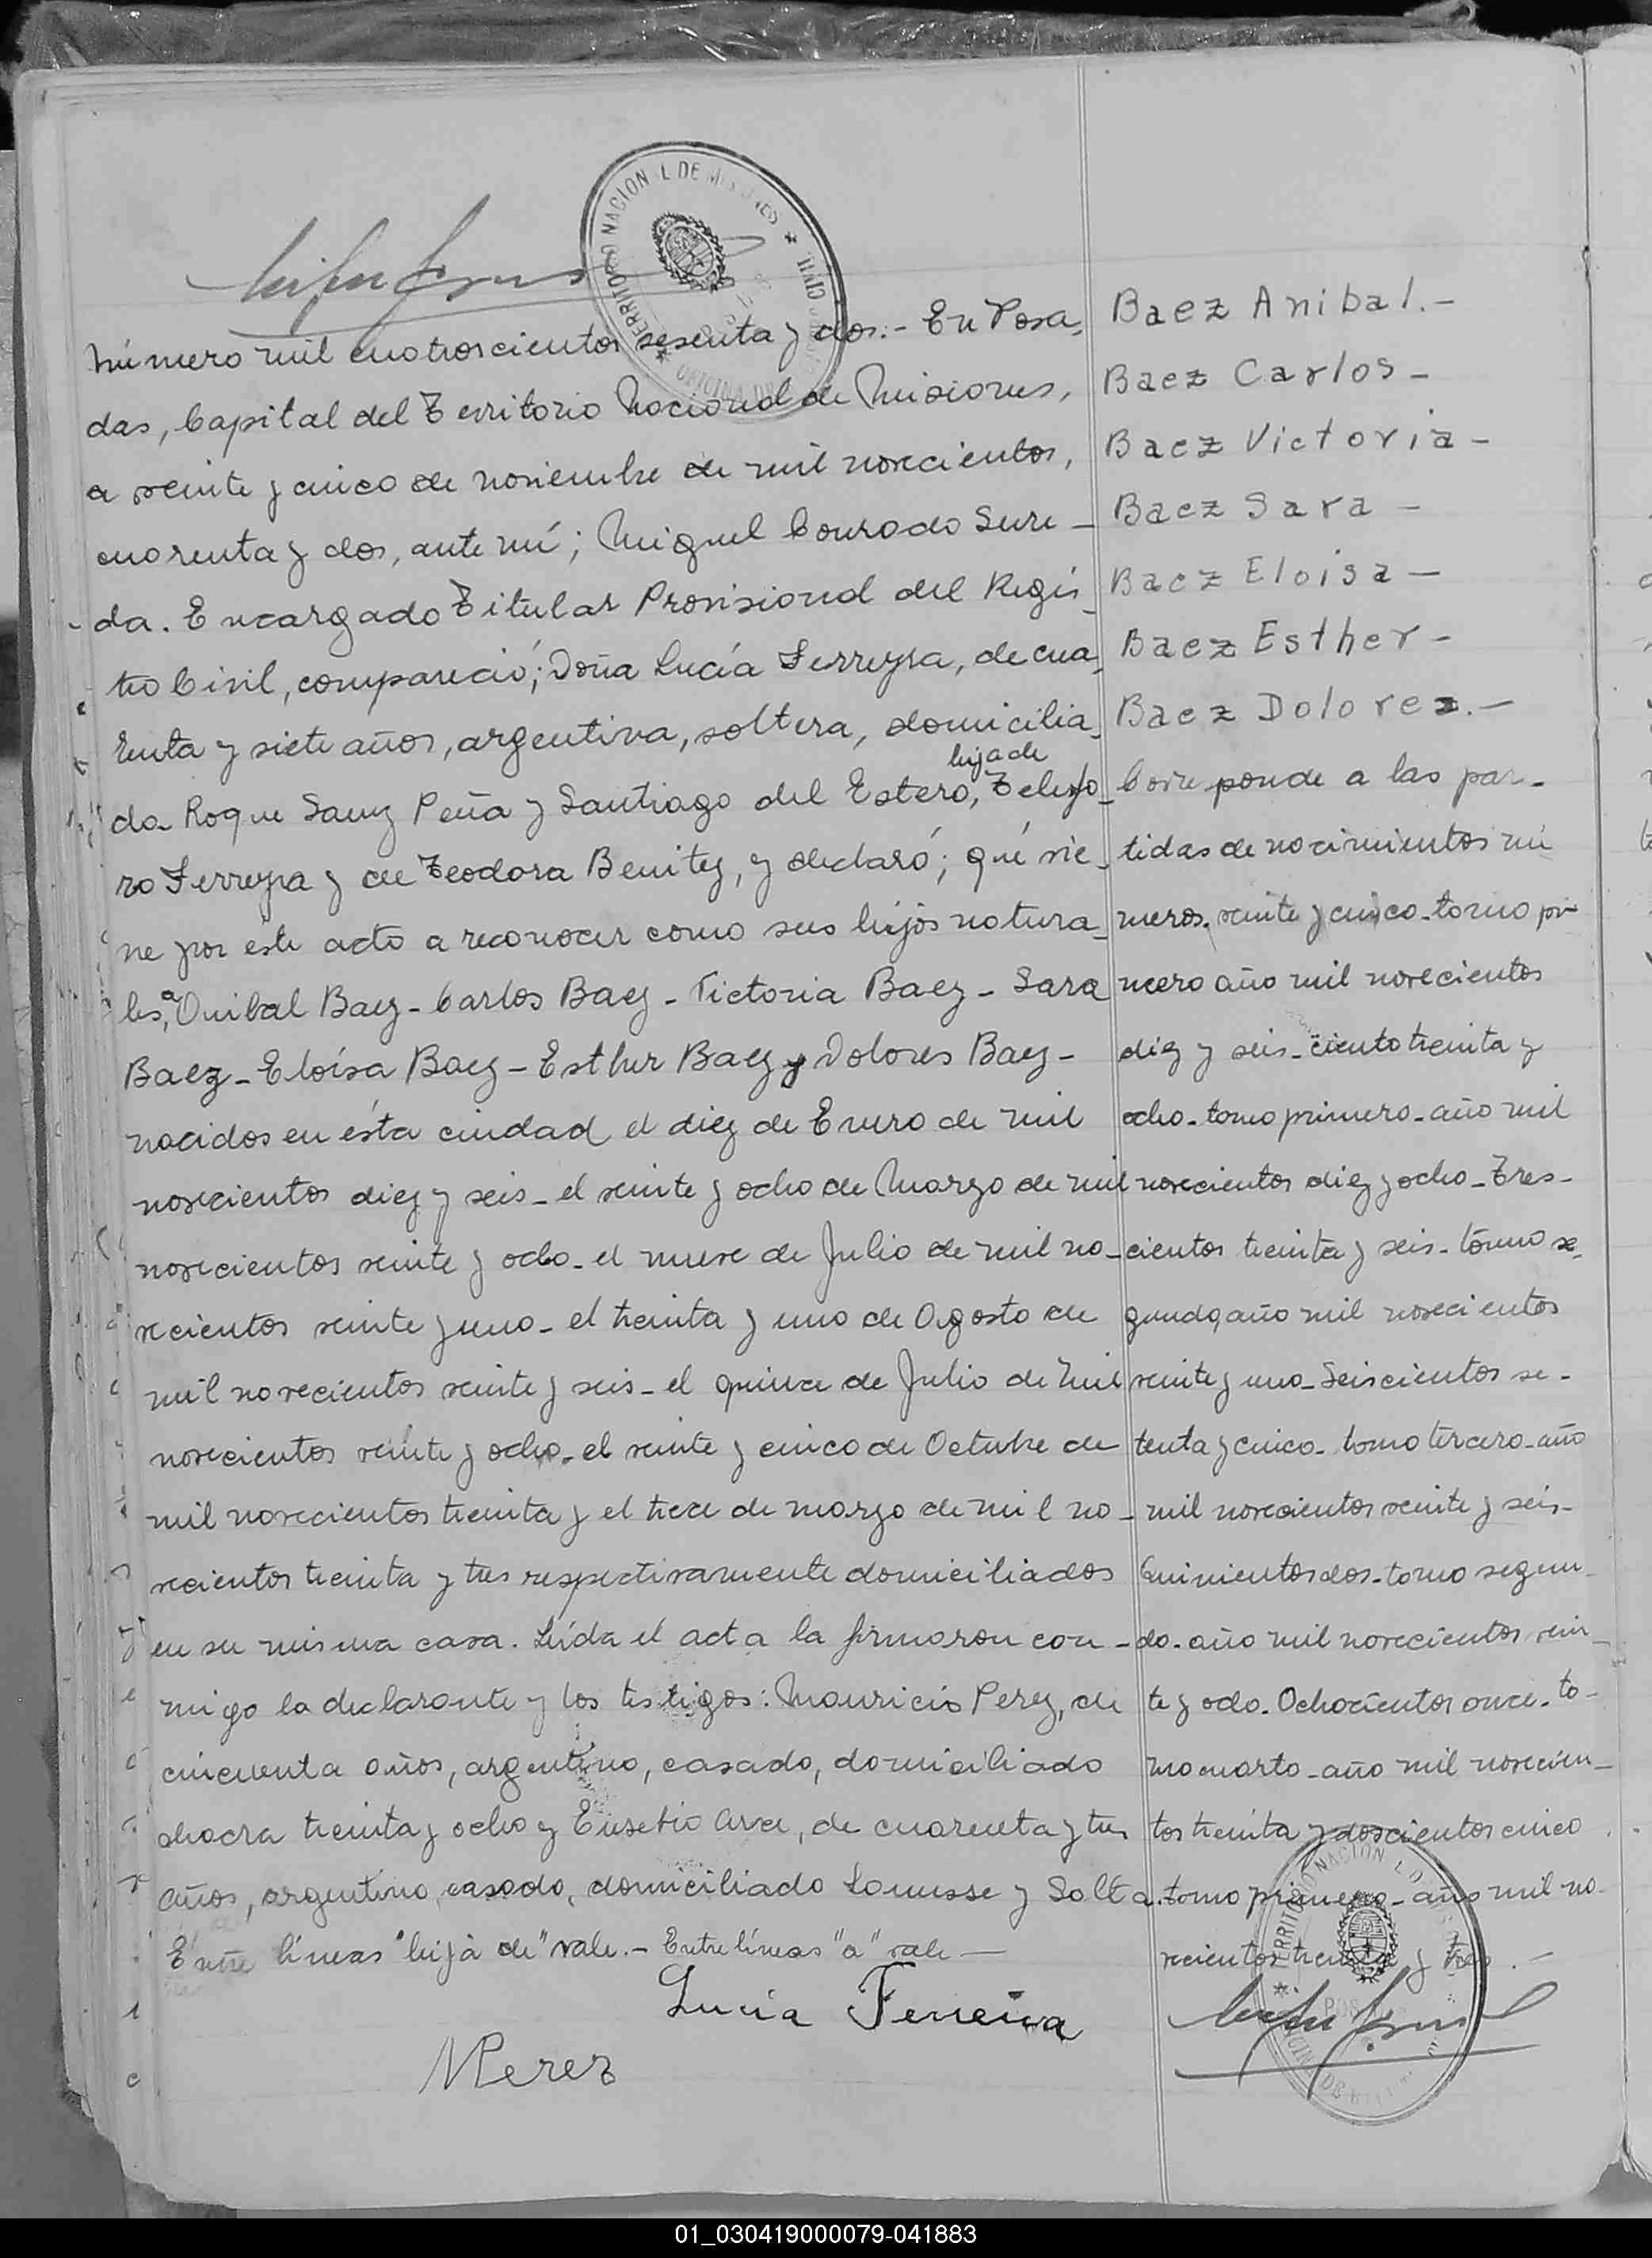 TERRITORIO NACIONAL DE MISIONES
Número mil cuatroscientos sesenta y dos.- En Posa-
das, Capital del Territorio Nacional de Misiones,
a veinte y cinco de noviembre de mil novecientos,
cuarenta y dos, ante mí; Miguel Conrado Sure-
da. Encargado Titular Provisional del Regis-
tro Civil, compareció; Doña Lucía Ferreyra, de cua-
renta y siete años, argentina, soltera, domicilia-
hija de
da Roque Saenz Peña y Santiago del Estero, Telesfo-
ro Ferreyra y de Teodora Benitez, y declaró; qué vie-
ne por este acto a reconocer como sus hijos natura-
a
les, Anibal Baez - Carlos Baez - Victoria Baez - Sara
Baez - Eloísa Baez - Esther Baez y Dolores Baez -
nacidos en ésta ciudad el diez de Enero de mil
novecientos diez y seis - el veinte y ocho de Marzo de mil
novecientos veinte y ocho - el nueve de Julio de mil no-
vecientos veinte y uno - el treinta y uno de Agosto de
mil novecientos veinte y seis - el quince de Julio de mil
novecientos veinte y ocho - el veinte y cinco de Octubre de
mil novecientos treinta y el trece de marzo de mil no-
vecientos treinta y tres respectivamente domiciliados
en su misma casa. Leída el acta la firmaron con-
migo la declarante y los testigos: Mauricio Perez, de
cincuenta años, argentino, casado, domiciliado
chacra treinta y ocho y Eusebio Arce, de cuarenta y tres
años, argentino, casado, domiciliado Lanusse y Salta.
Entre líneas "hija de" vale.- Entre líneas "a" vale -
Lucia Ferreira
MPerez
Baez Anibal.-
Baez Carlos -
Baez Victoria -
Baez Sara -
Baez Eloisa -
Baez Esther -
Baez Dolores.-
Corresponde a las par-
tidas de nacimientos nú
meros. veinte y cinco - tomo pri-
mero año mil novecientos
diez y seis - ciento treinta y
ocho - tomo primero - año mil
novecientos diez y ocho - Tres-
cientos treinta y seis - tomo se-
gundo, año mil novecientos
veinte y uno - Seiscientos se-
tenta y cinco - tomo tercero - año
mil novecientos veinte y seis -
Quinientos dos - tomo segun-
do - año mil novecientos vein-
te y ocho - Ochocientos once - to-
mo cuarto - año mil novecien-
tos treinta y doscientos cinco
tomo primero - año mil no-
vecientos treinta y tres.-
01_030419000079-041883